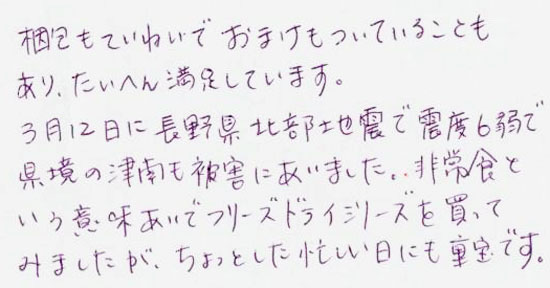 梱包もていねいで おまけもついていることも
あり、たいへん満足しています。
3月12日に長野県北部地震で震度6弱で
県境の津南も被害にあいました。非常食と
いう意味あいでフリーズドライシリーズを買って
みましたが、ちょっとした忙しい日にも重宝です。